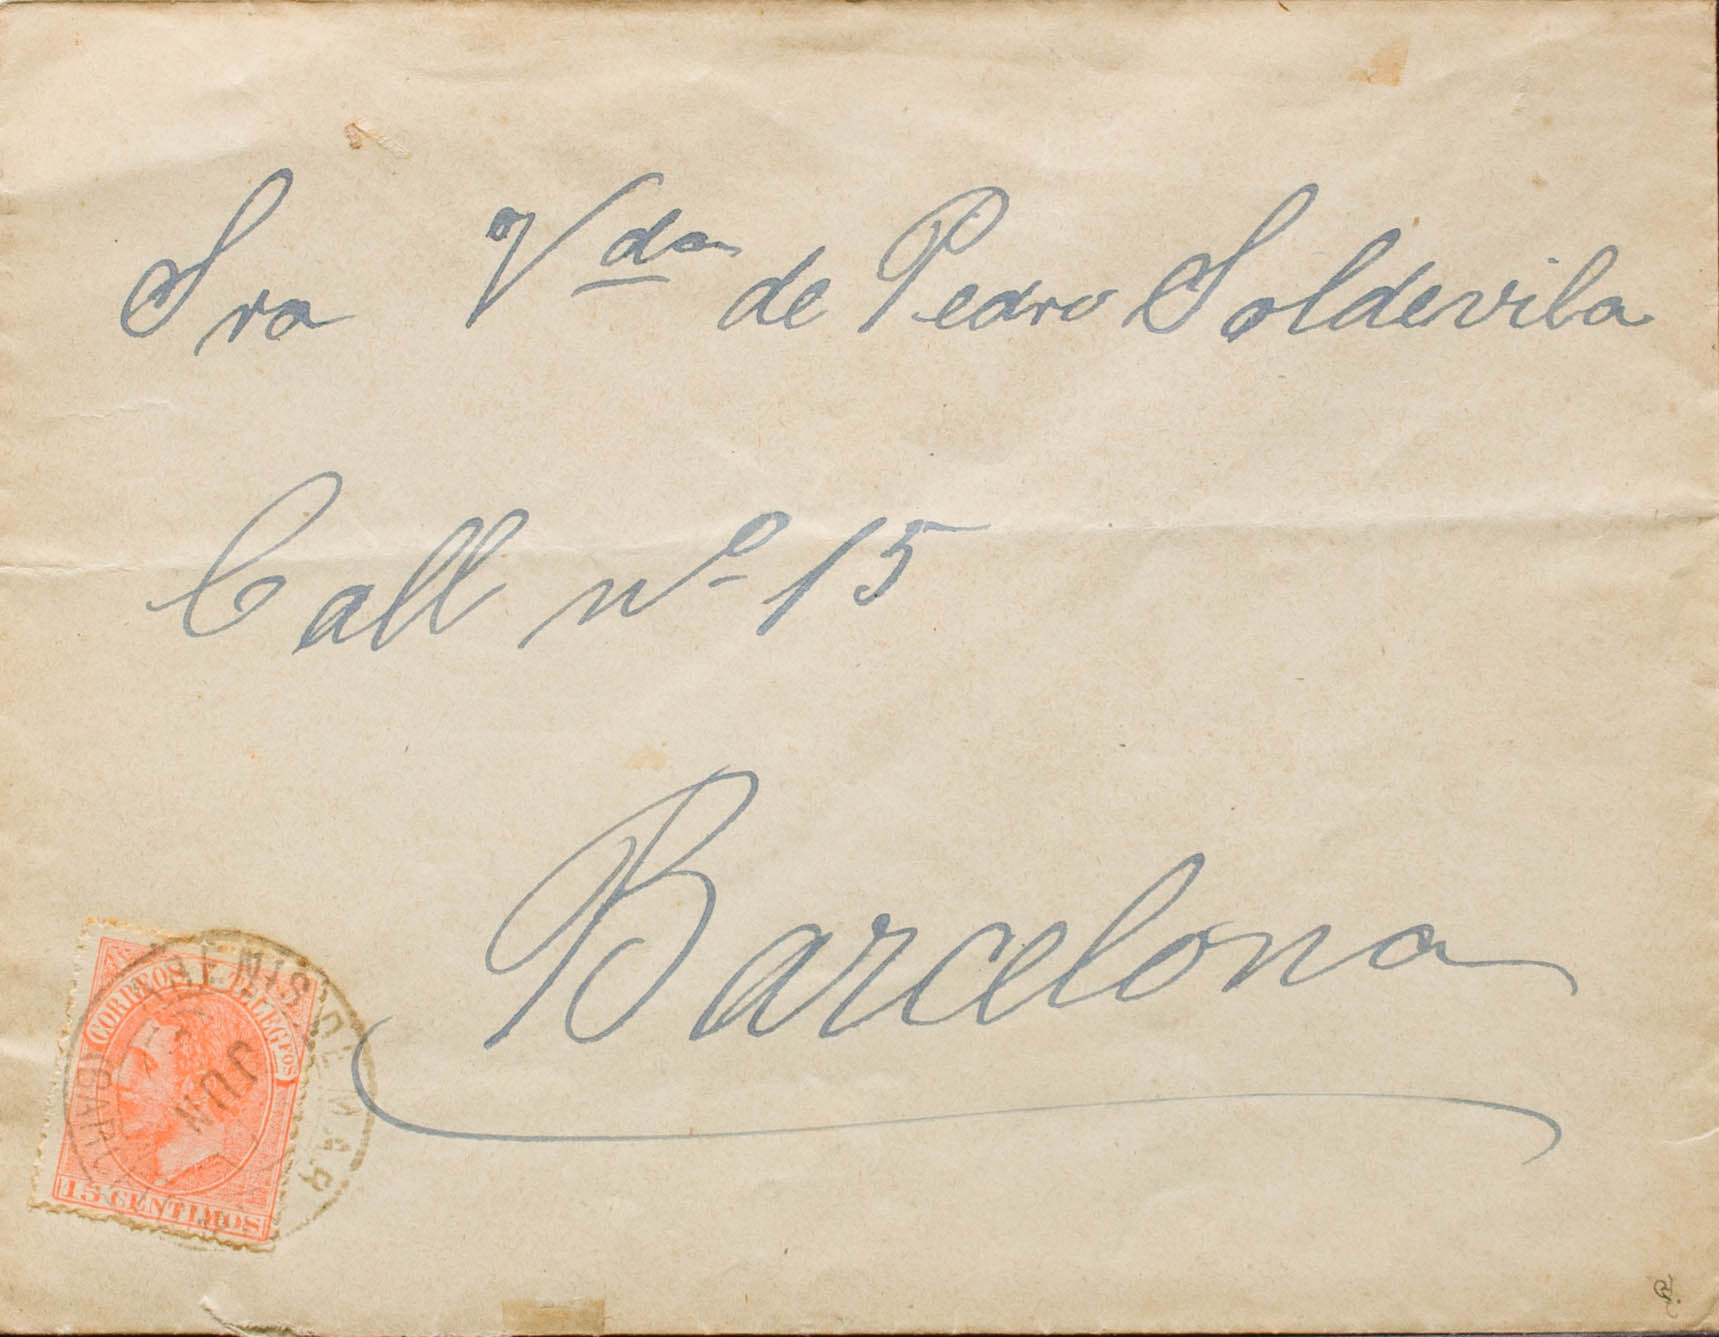 Sra Vda de Pedro Soldevila
Call nº 15
Barcelona
CORREOS Y TELEGFOS
15 CENTIMOS
PREMIS DE MAR
JUN